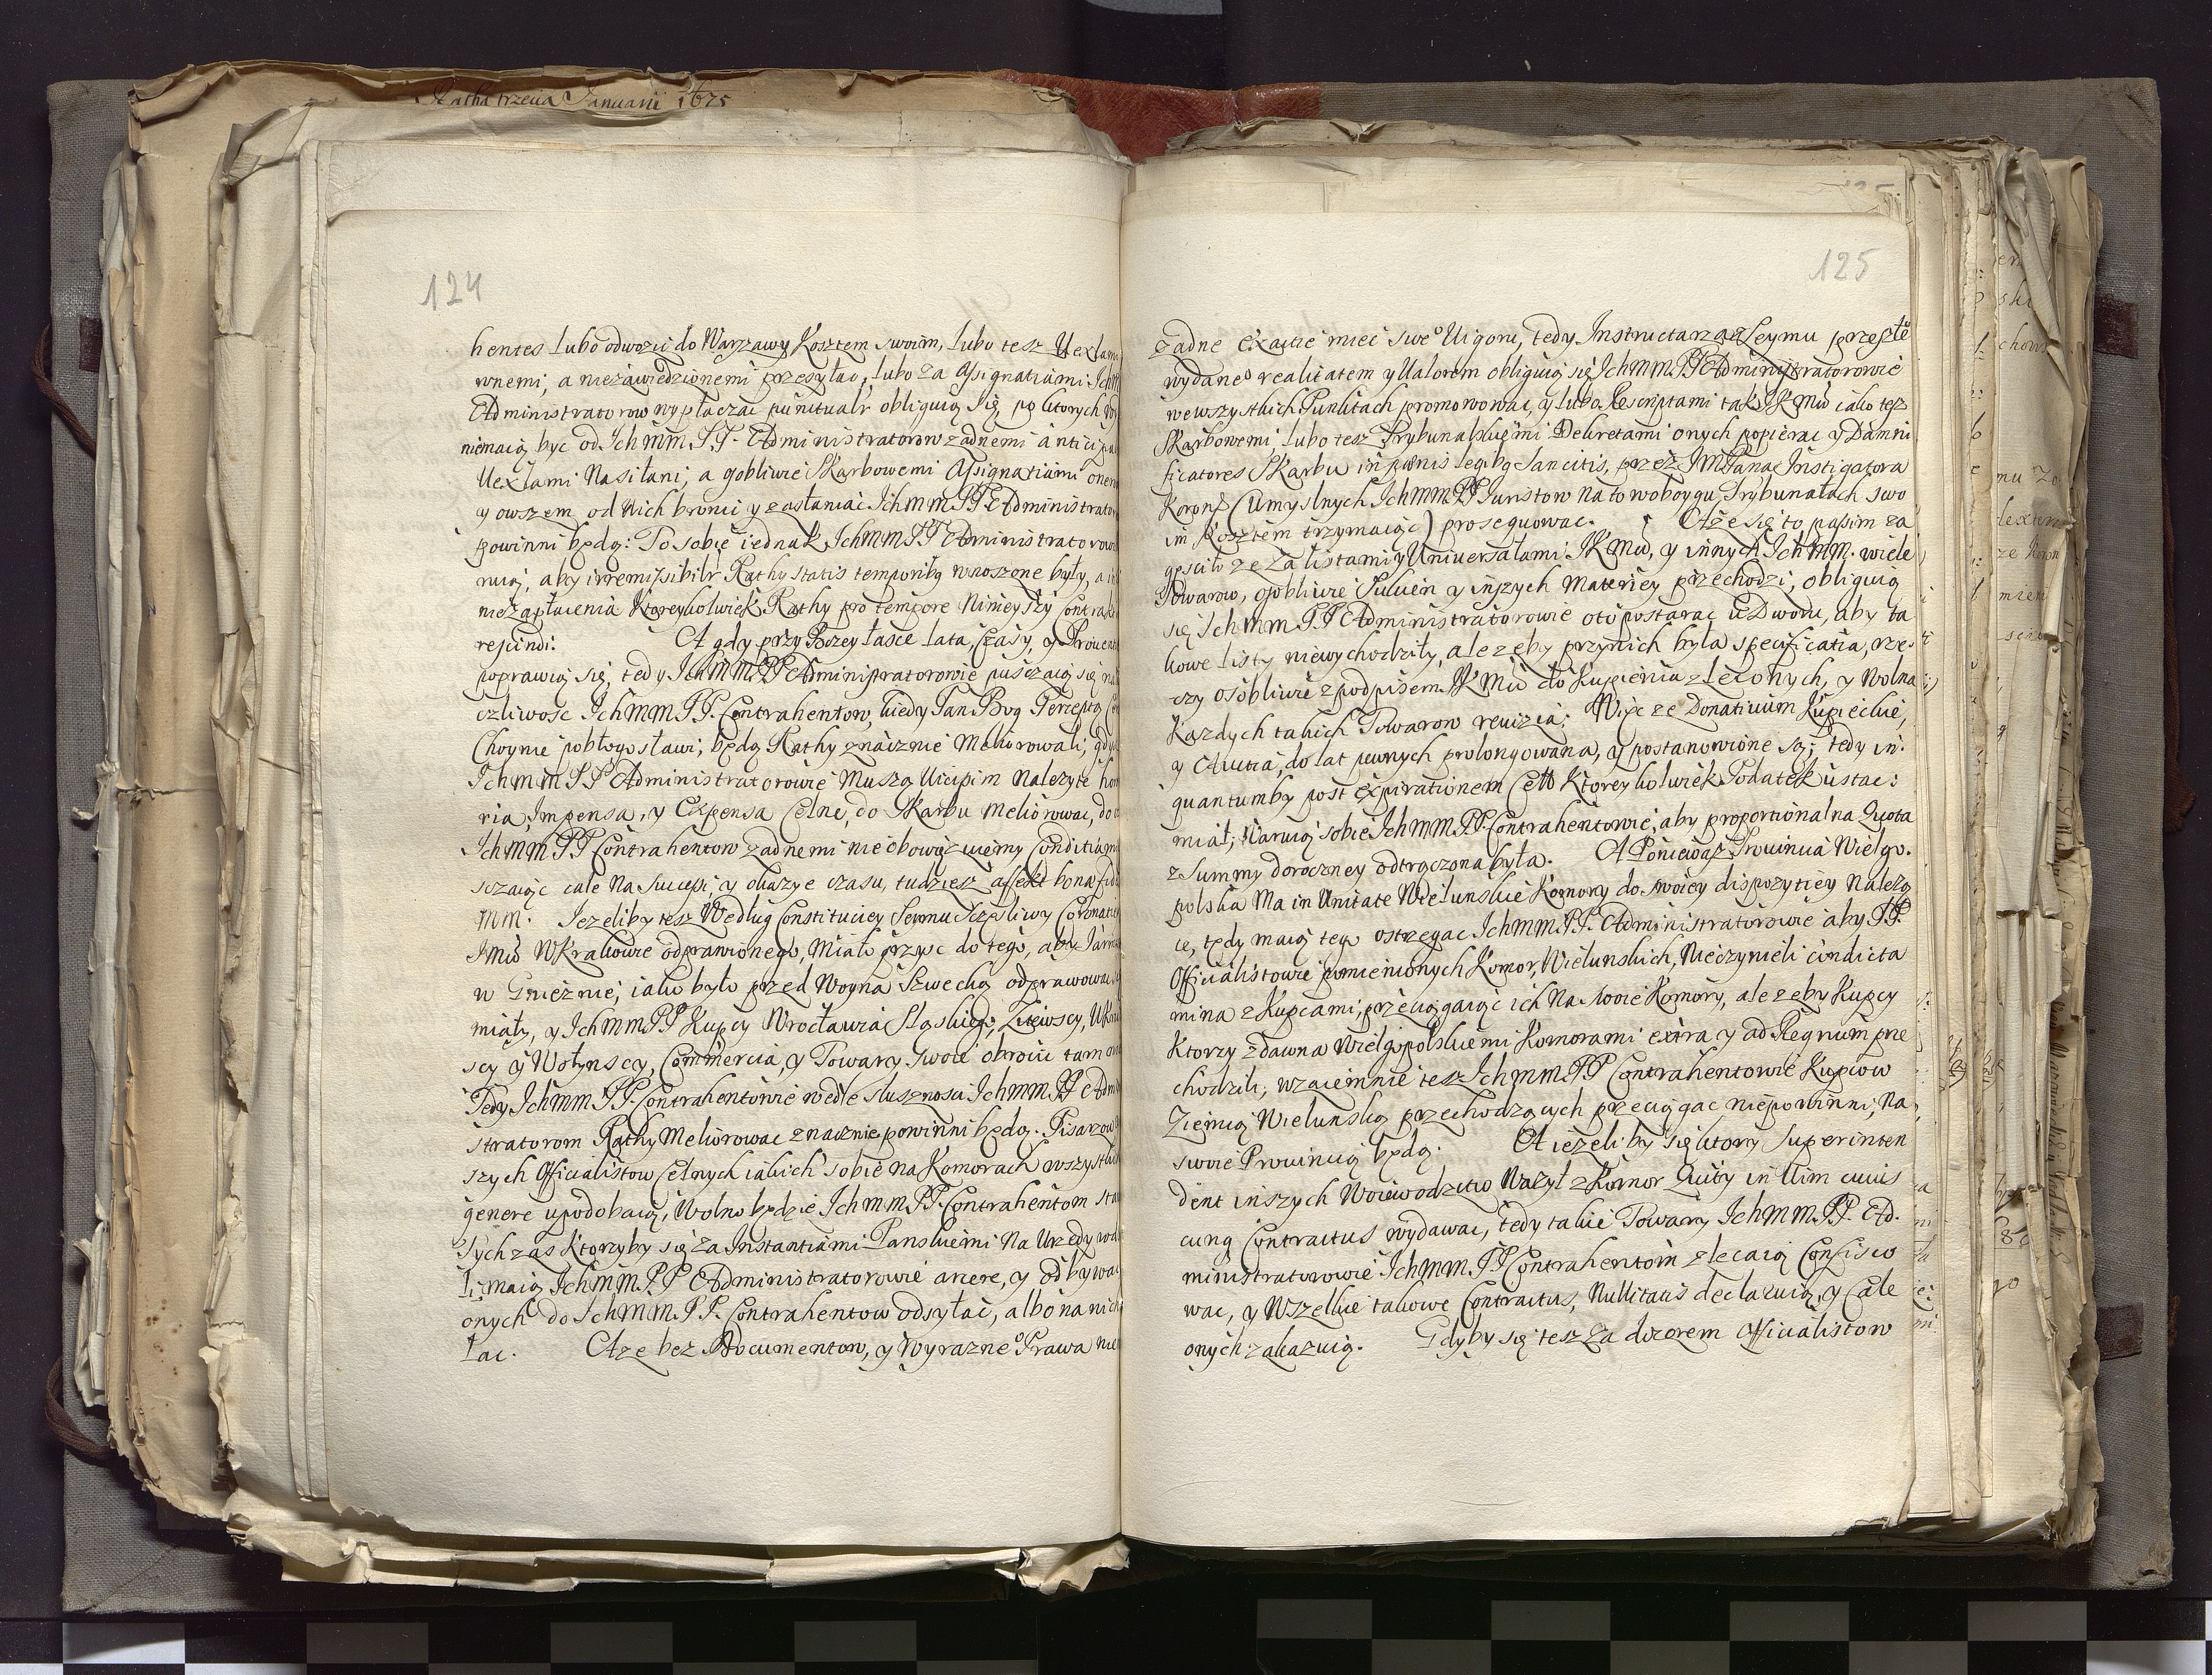 Ratha trzecia Januarii 1675
124
hentes lubo odwozić do Warszawy Kosztem swoim, lubo tesz Uexlami
wnemi, a niezawiedzionemi przesyłać, lubo za Assignatiami Ichm
Administratorow wypłaczać punctualr obliguią się, po ktorych
niemaią byc od Ichmm PP. Administratorow zadnemi anticipa
Uexlami Nasiłani, a osobliwie Skarbowemi Assignatiami onera
y owszem od Nich bronić y zasłaniać Ichmm PP Administrator
powinni będą: To sobie iednak Ichmm PP Administratorow
ruią, aby irremissibilr Rathy statis temporibg wnoszone były, a
niezapłacenia Ktoreykolwiek Rathy pro tempore Ninieyszy Contrak
rescindi: A gdy przy Bozey łasce lata, Czasy, y Prouent
poprawią się, tedy Ichmm PP Administratorowie puszczaią się na
czliwosc Ichmm PP. Contrahentow, kiedy Pan Bog Percepta
Choynie pobłogosławi, będą Rathy znacznie Meliorowali, gdy
Ichmm PP Administratorowie Muszą Vicissim Nalezyte hon
ria, Impensa, y Expensa Celne, do Skarbu Meliorowac, do
Ichmm PP Contrahentow zadnemi nieobowiązuiemy Conditiami
sczaiąc cale Na Succesy, y okazye czasu, tudziesz affekt bona fide
mm. Iezeliby tesz Według Constituciey Seymu Sczęsliwy Coronatiey
Jmći W Krakowie odprawionego, Miało przysc do tego, aby Iarma
w Gnieznie, iako było przed Woyną Szwecką odprawowac
miały, y Ichmm PP Kupcy Wrocławia Sląskiego, Litewscy, Ukra
scy y Wołynscy, Commercia, y Towary Swoie obrocic tam
Tedy Ichmm PP. Contrahentowie wedle słusznosci Ichmm PP Admi
stratorom Rathy Meliorowac znacznie powinni będą. Pisarzow
szych Officialistow Celnych iakich sobie na Komorach wszystkich
genere upodobaią, Wolno będzie Ichmm PP. Contrahentom sta
Tych zas Ktorzyby się za Instantiami Panskiemi Na Urzędy
li, maią Ichmm. PP Administratorowie arcere, y odbywac
onych do Ichmm. PP. Contrahentow odsyłać, albo na nich
łac. A ze bez Documentow, y Wyrazneo Prawa nie
125
zadne Exactie mieć sweo Uigoru, tedy Instructarza z Seymu przeszłeo
wydaneo realitatem y Ualorem obliguią się Ichmm. PP Administratorowie
we wszystkich Punktach promowować, y lubo Rescriptami tak JKMći iako tesz
Skarbowemi, lubo tesz Trybunalskiemi Dekretami onych popierac y Damni
ficatores Skarbu in pœnis legibg Sancitis, przez JMPana Instigatora
Koron. (Umyslnych Ichmm. PP Iuristow na to woboygu Trybunałach swo
im Kosztem trzymaiąc) prosequować. A ze się to passim za
gęsciło ze za listami y Universałami JKMći, y innych Ichmm. wiele
Towarow, osobliwie Sukien y inszych Materiey przechodzi, obliguią
się Ichmm PP Administratorowie o to postarac u Dworu, aby ta
kowe listy niewychodziły, ale zeby przynich była specificatia, rze
czy osobliwie z podpisem JKMći do Kupienia zleconych, y Wolna
Kazdych takich Towarow reuizia. Więc ze Donatiuum Kupieckie,
y Auctia, do lat pewnych prolongowana, y postanowione są, tedy in
quantumby post expirationem Ktoreykolwiek Podatek ustac:
miał, Waruią sobie Ichmm. PP. Contrahentowie, aby proportionalna Quota
z Summy doroczney odtrączona była. A Poniewasz Prouincia Wielgo.
polska Ma in Unitate Wielunskie Komory do swoiey dispozytiey Nalezą
ce, tedy maią tego ostrzegac Ichmm. PP. Administratorowie aby PP.
Officialistowie pomienionych Komor, Wielunskich, Nieczynieli condicta
mina z Kupcami, przeciągaiąc ich Na swoie Komory, ale zeby Kupcy
Ktorzy zdawna Wielgopolskiemi Komorami extra y ad Regnum prze
chodzili, wzaiemnie tesz Ichmm. PP Contrahentowie Kupcow
Ziemią Wielunską przechodzących przeciągac niepowinni, Na
swoie Prouincią będą. A iezeliby się ktory Superinten
dent inszych Woiewodztw Wazył z Komor Quity in Uim cuius
cunq Contractus wydawac, tedy takie Towary Ichmm. PP. Ad.
ministratorowie Ichmm. PP Contrahentom zlecaią Confisco
wac, y Wszelkie takowe Contractus, Nullitatis declaruią, y Cale
onych zakazuią. Gdyby się tesz za dozorem Officialistow